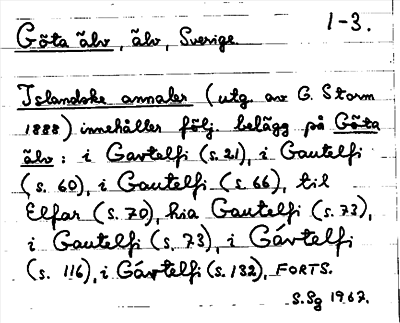 1-3.
Göta älv, älv, Sverige.
Islandske annaler (utg. av G. Storm
1888) innehåller följ. belägg på Göta
älv: i Gavtelfi (s. 21), i Gautelfi
(s. 60), i Gautelfi (s. 66), til
Elfar (s. 70), hia Gautelfi (s. 73),
i Gautelfi (s. 73), i Gávtelfi
(s. 116), i Gávtelfi (s. 132), FORTS.
S.Sg 1967.